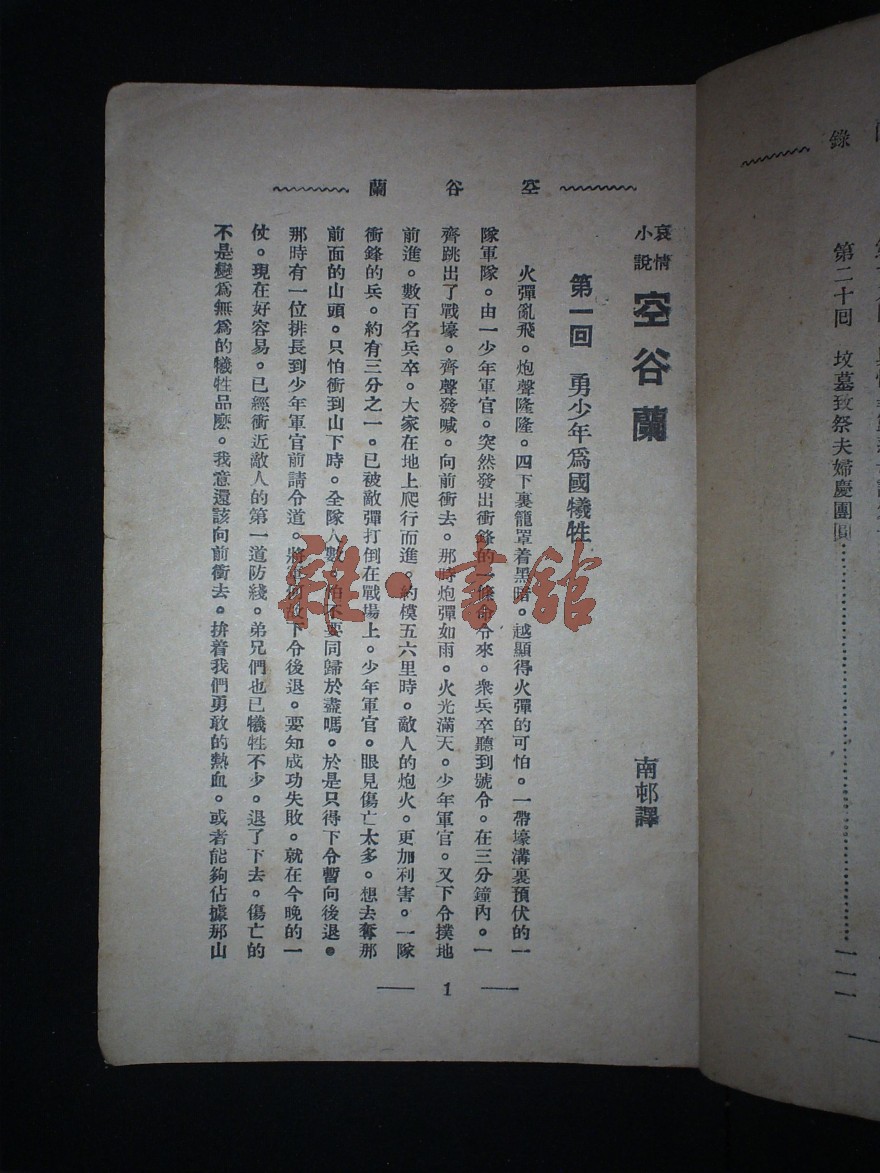 錄
第二十回 墳墓致祭夫婦慶團圓……………………一一一
空谷蘭
哀情小說 空谷蘭
南邨譯
第一回 勇少年爲國犧牲
火彈亂飛。炮聲隆隆。四下裏籠罩着黑暗。越顯得火彈的可怕。一帶壕溝裏預伏的一
隊軍隊。由一少年軍官。突然發出衝鋒的一條命令來。衆兵卒聽到號令。在三分鐘內。一
齊跳出了戰壕。齊聲發喊。向前衝去。那時炮彈如雨。火光滿天。少年軍官。又下令撲地
前進。數百名兵卒。大家在地上爬行而進。約模五六里時。敵人的炮火。更加利害。一隊
衝鋒的兵。約有三分之一。已被敵彈打倒在戰場上。少年軍官。眼見傷亡太多。想去奪那
前面的山頭。只怕衝到山下時。全隊人數。怕不要同歸於盡嗎。於是只得下令暫向後退。
那時有一位排長到少年軍官前請令道。將軍何故下令後退。要知成功失敗。就在今晚的一
仗。現在好容易。已經衝近敵人的第一道防綫。弟兄們也已犧牲不少。退了下去。傷亡的
不是變爲無爲的犧牲品麽。我意還該向前衝去。拚着我們勇敢的熱血。或者能夠佔據那山
1
雜·書館